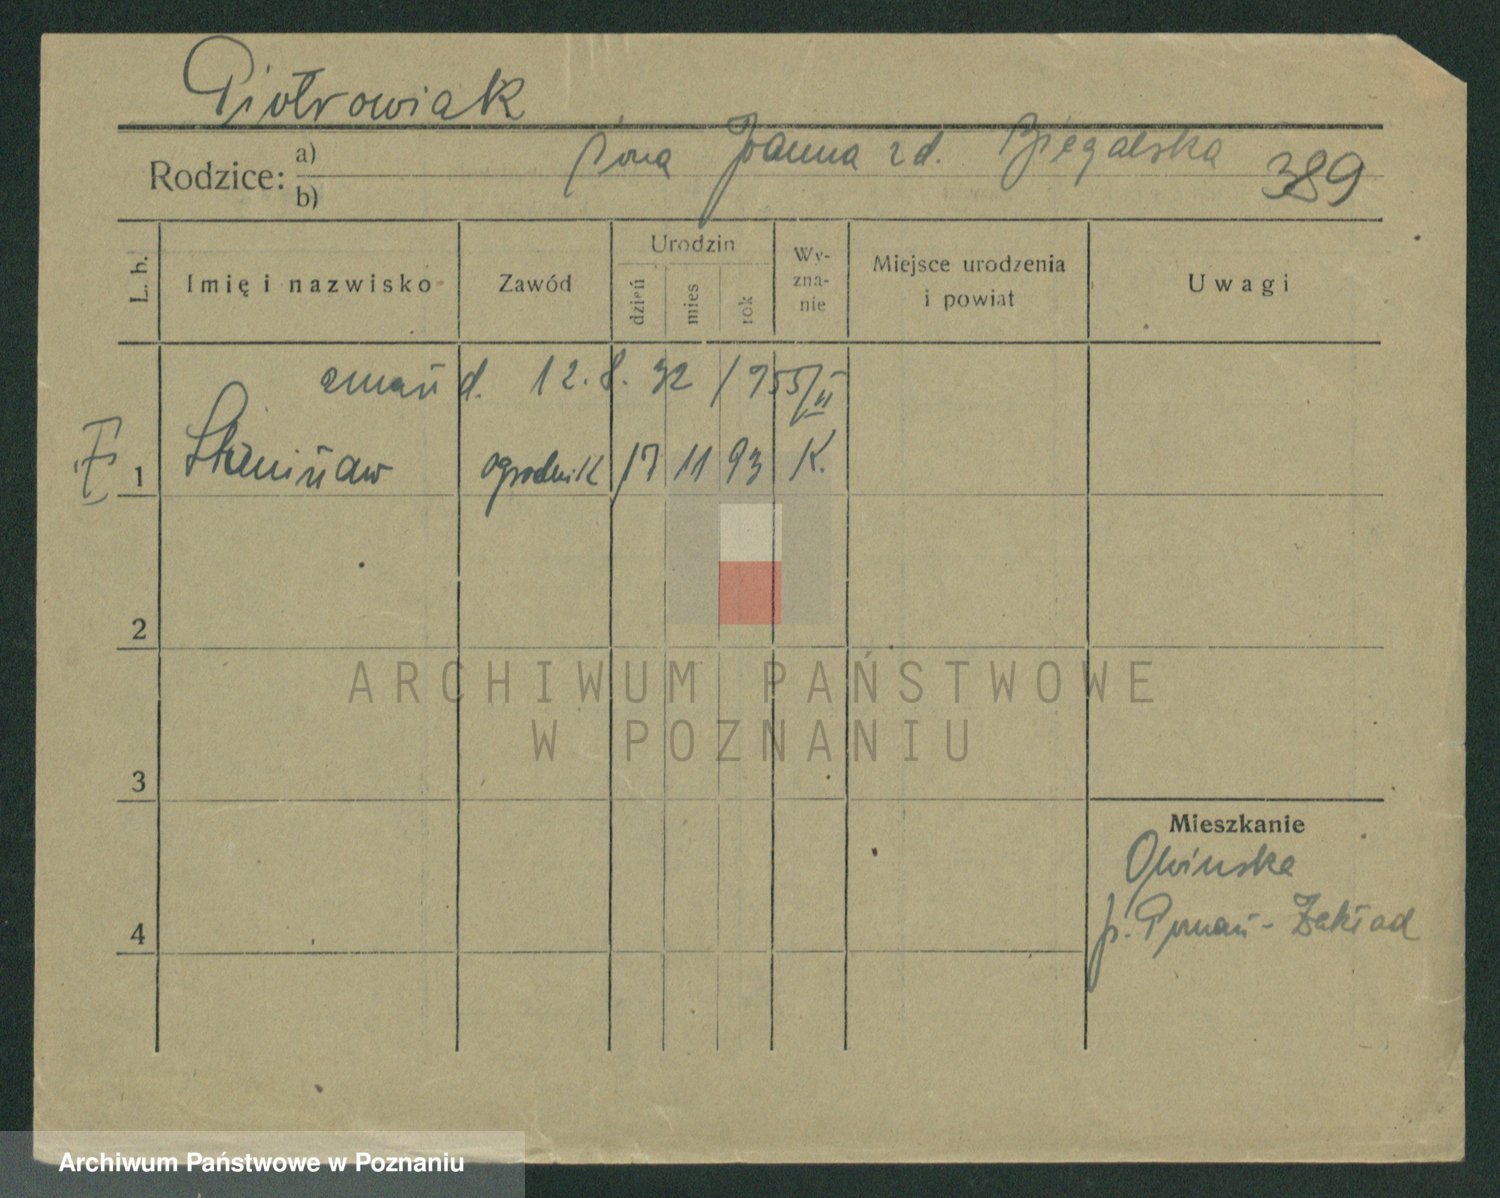 Piotrowiak
Rodzice: a) żona Joanna zd. Biegalska 389
b)
L. b. Imię i nazwisko Zawód Urodzin dzień mies rok Wy-zna-nie Miejsce urodzenia i powiat Uwagi
zmarł d. 12.8.32 /755/II
1 Stanisław ogrodnik 17 11 93 K.
2
3
Mieszkanie
Owinska
p. Poznań - Zakład
4
ARCHIWUM PAŃSTWOWE
W POZNANIU
Archiwum Państwowe w Poznaniu